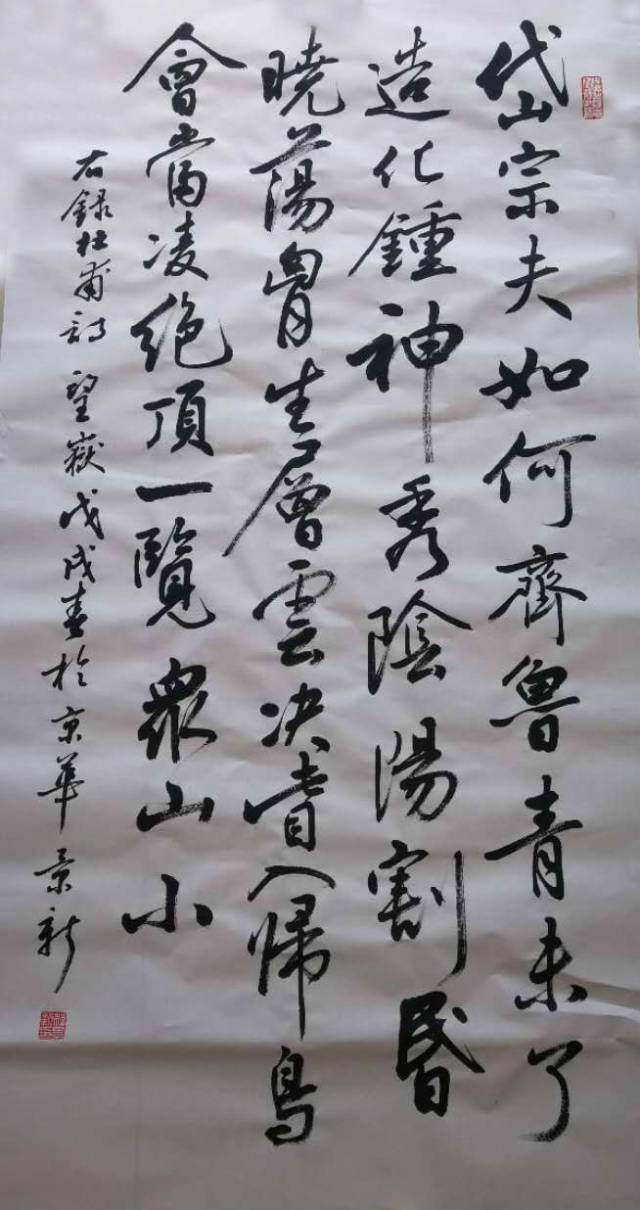 岱宗夫如何齊魯青未了
造化鍾神秀陰陽割昏
曉蕩胷生層雲決眥入帰鳥
會當凌絶頂一覽眾山小
右錄杜甫詩望嶽戊戌春於京華景新